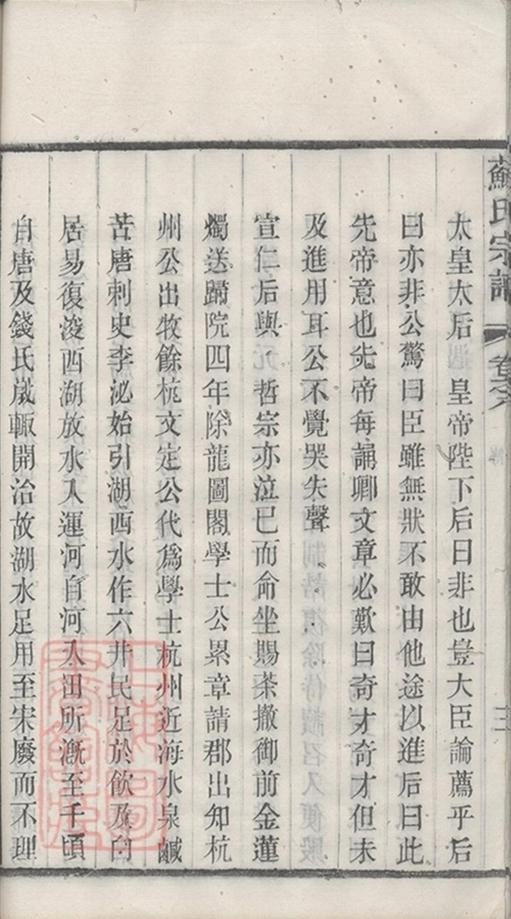 蘇氏宗譜 卷之六 三
太皇太后 皇帝陛下后曰非也豈大臣論薦乎后
曰亦非公驚曰臣雖無狀不敢由他途以進后曰此
先帝意也先帝每誦卿文章必歎曰奇才奇才但未
及進用耳公不覺哭失聲
宣仁后與 哲宗亦泣已而命坐賜茶撤御前金蓮
燭送歸院四年除龍圖閣學士公累章請郡出知杭
州公出牧餘杭文定公代爲學士杭州近海水泉鹹
苦唐刺史李泌始引湖西水作六井民足於飲及白
居易復浚西湖放水入運河自河入田所漑至千頃
自唐及錢氏歲輙開治故湖水足用至宋廢而不理